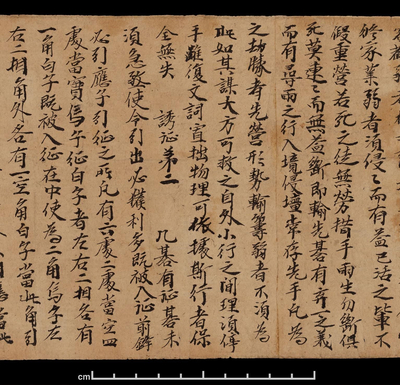 修家業弱者須侵〻而有益已活之輩不
假重營若死之徒無勞措手兩生勿斷俱
死莫連〻而無益斷即輸先碁有弃一之義
而有尋兩之行入境侵墻常存先手凡為
之劫勝者先營形勢輸籌弱者不須為
此如其謀大方可救之自外小行之閒理須停
手雖復文詞寡拙物理可依據斯行者保
全無失 誘征第二 凡碁有征碁未
須急煞使令引出必獲利多既被入征前鋒
必引應子引征之所凡有六處二處當空四
處當實烏子征白子者左右二相各有
一角白子既被入征在中使為二角烏子左
右二相角外各有一空角白子當此角引
cm